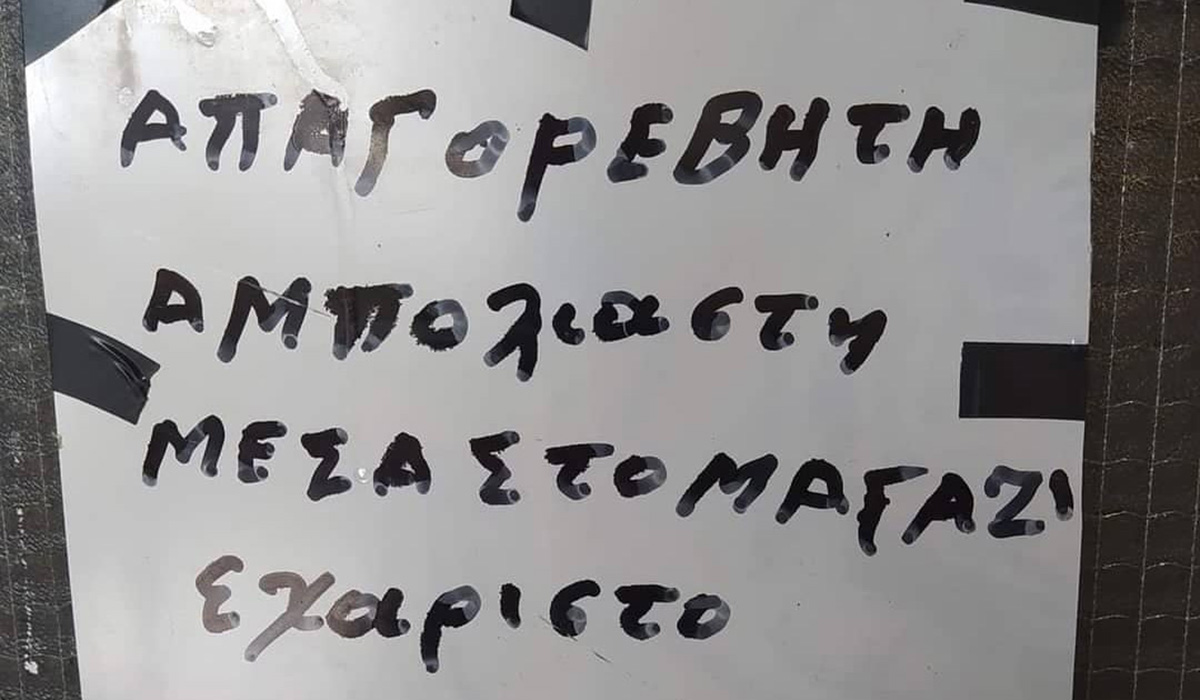 ΑΠΑΓΟΡΕΒΗΤΗ
ΑΜΠολιαστη
ΜΕΣΑ ΣΤΟ ΜΑΓΑΖΙ
εχαριστο